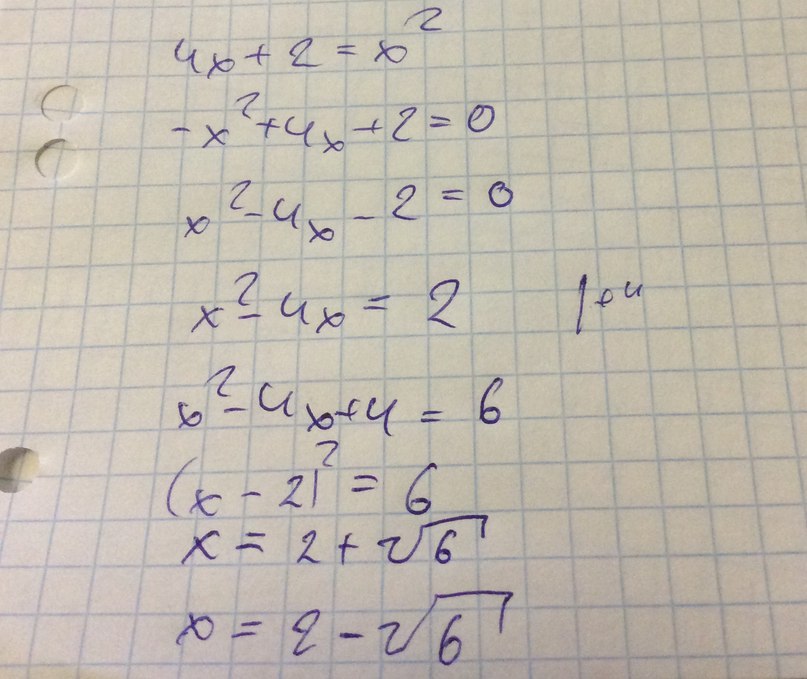 4x+2=x²
-x²+4x+2=0
x²-4x-2=0
x²-4x=2 |+4
x²-4x+4=6
(x-2)²=6
x=2+√6
x=2-√6